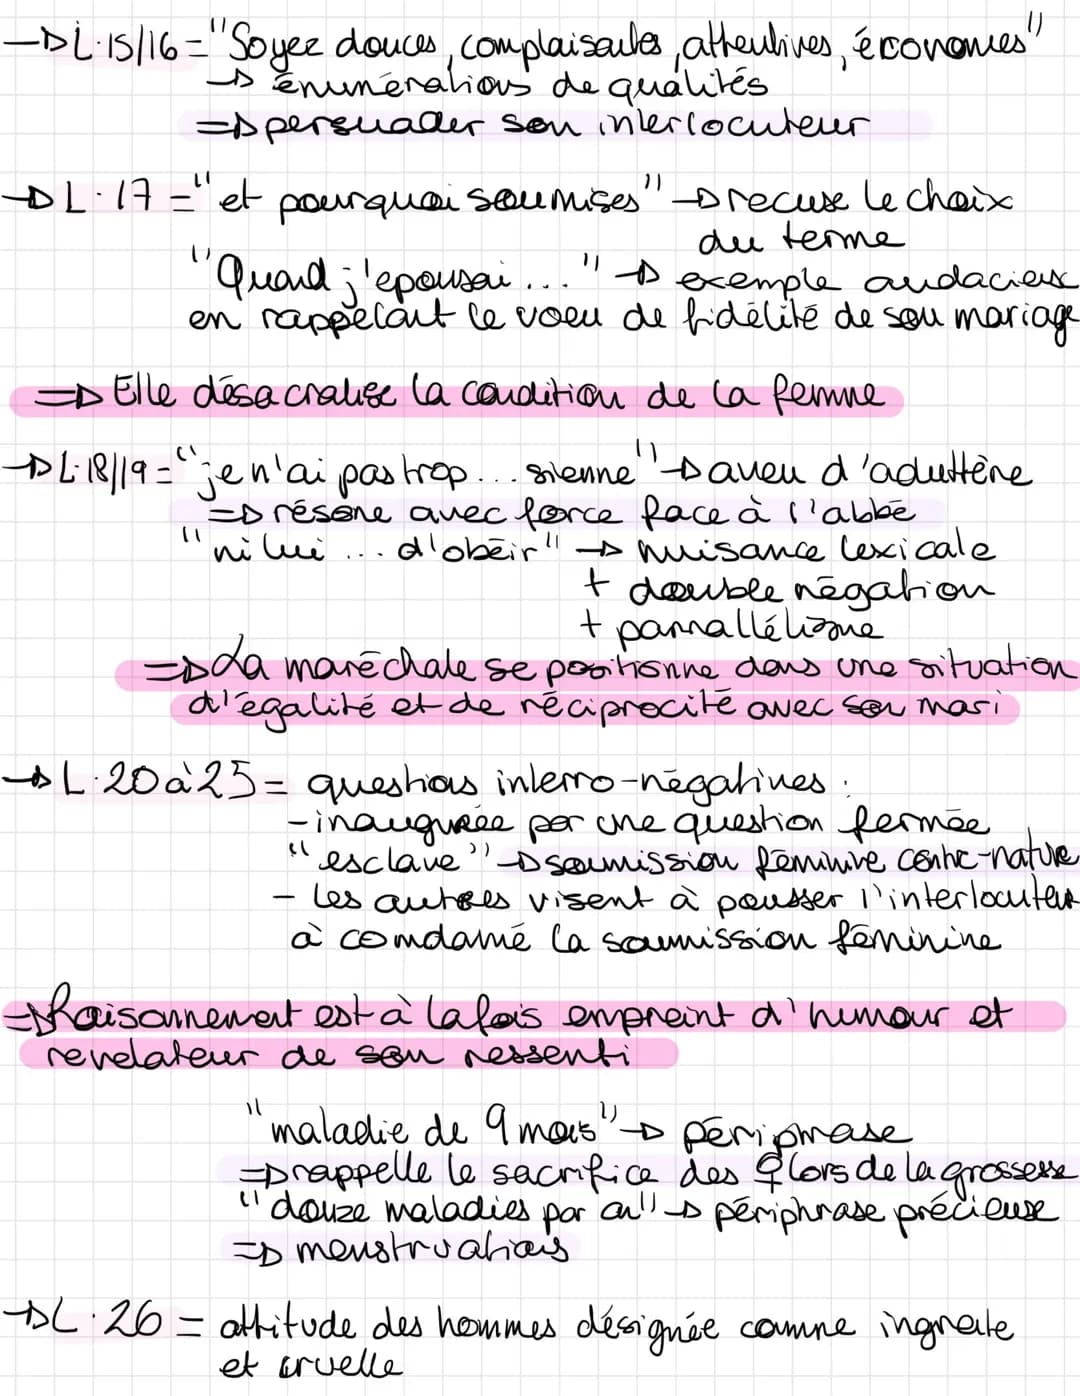 → L.15/16 = "Soyez douces, complaisantes, attentives, économes"
→ énumérations de qualités
⇒ persuader son interlocuteur
→ L.17 = "et pourquoi soumises" → recuse le choix
du terme
"Quand j'épousai..." → exemple audacieux
en rappelant le voeu de fidélité de son mariage
⇒ Elle désacralise la condition de la femme
→ L.18/19 = "je n'ai pas trop... sienne" → aveu d'adultère
⇒ résone avec force face à l'abbé
"ni lui ... d'obéir" → nuisance lexicale
+ double négation
+ parrallélisme
⇒ La maréchale se positionne dans une situation
d'égalité et de réciprocité avec son mari
→ L.20 à 25 = questions interro-négatives :
- inaugurée par une question fermée
"esclave" → soumission féminine contre-nature
- les autres visent à pousser l'interlocuteur
à comdamé la soumission féminine
⇒ Raisonnement est à la fois empreint d'humour et
revelateur de son ressenti
"maladie de 9 mois" → périphrase
⇒ rappelle le sacrifice des ♀ lors de la grossesse
"douze maladies par an" → périphrase précieuse
⇒ menstruations
→ L.26 = attitude des hommes désignée comme ingrate
et cruelle